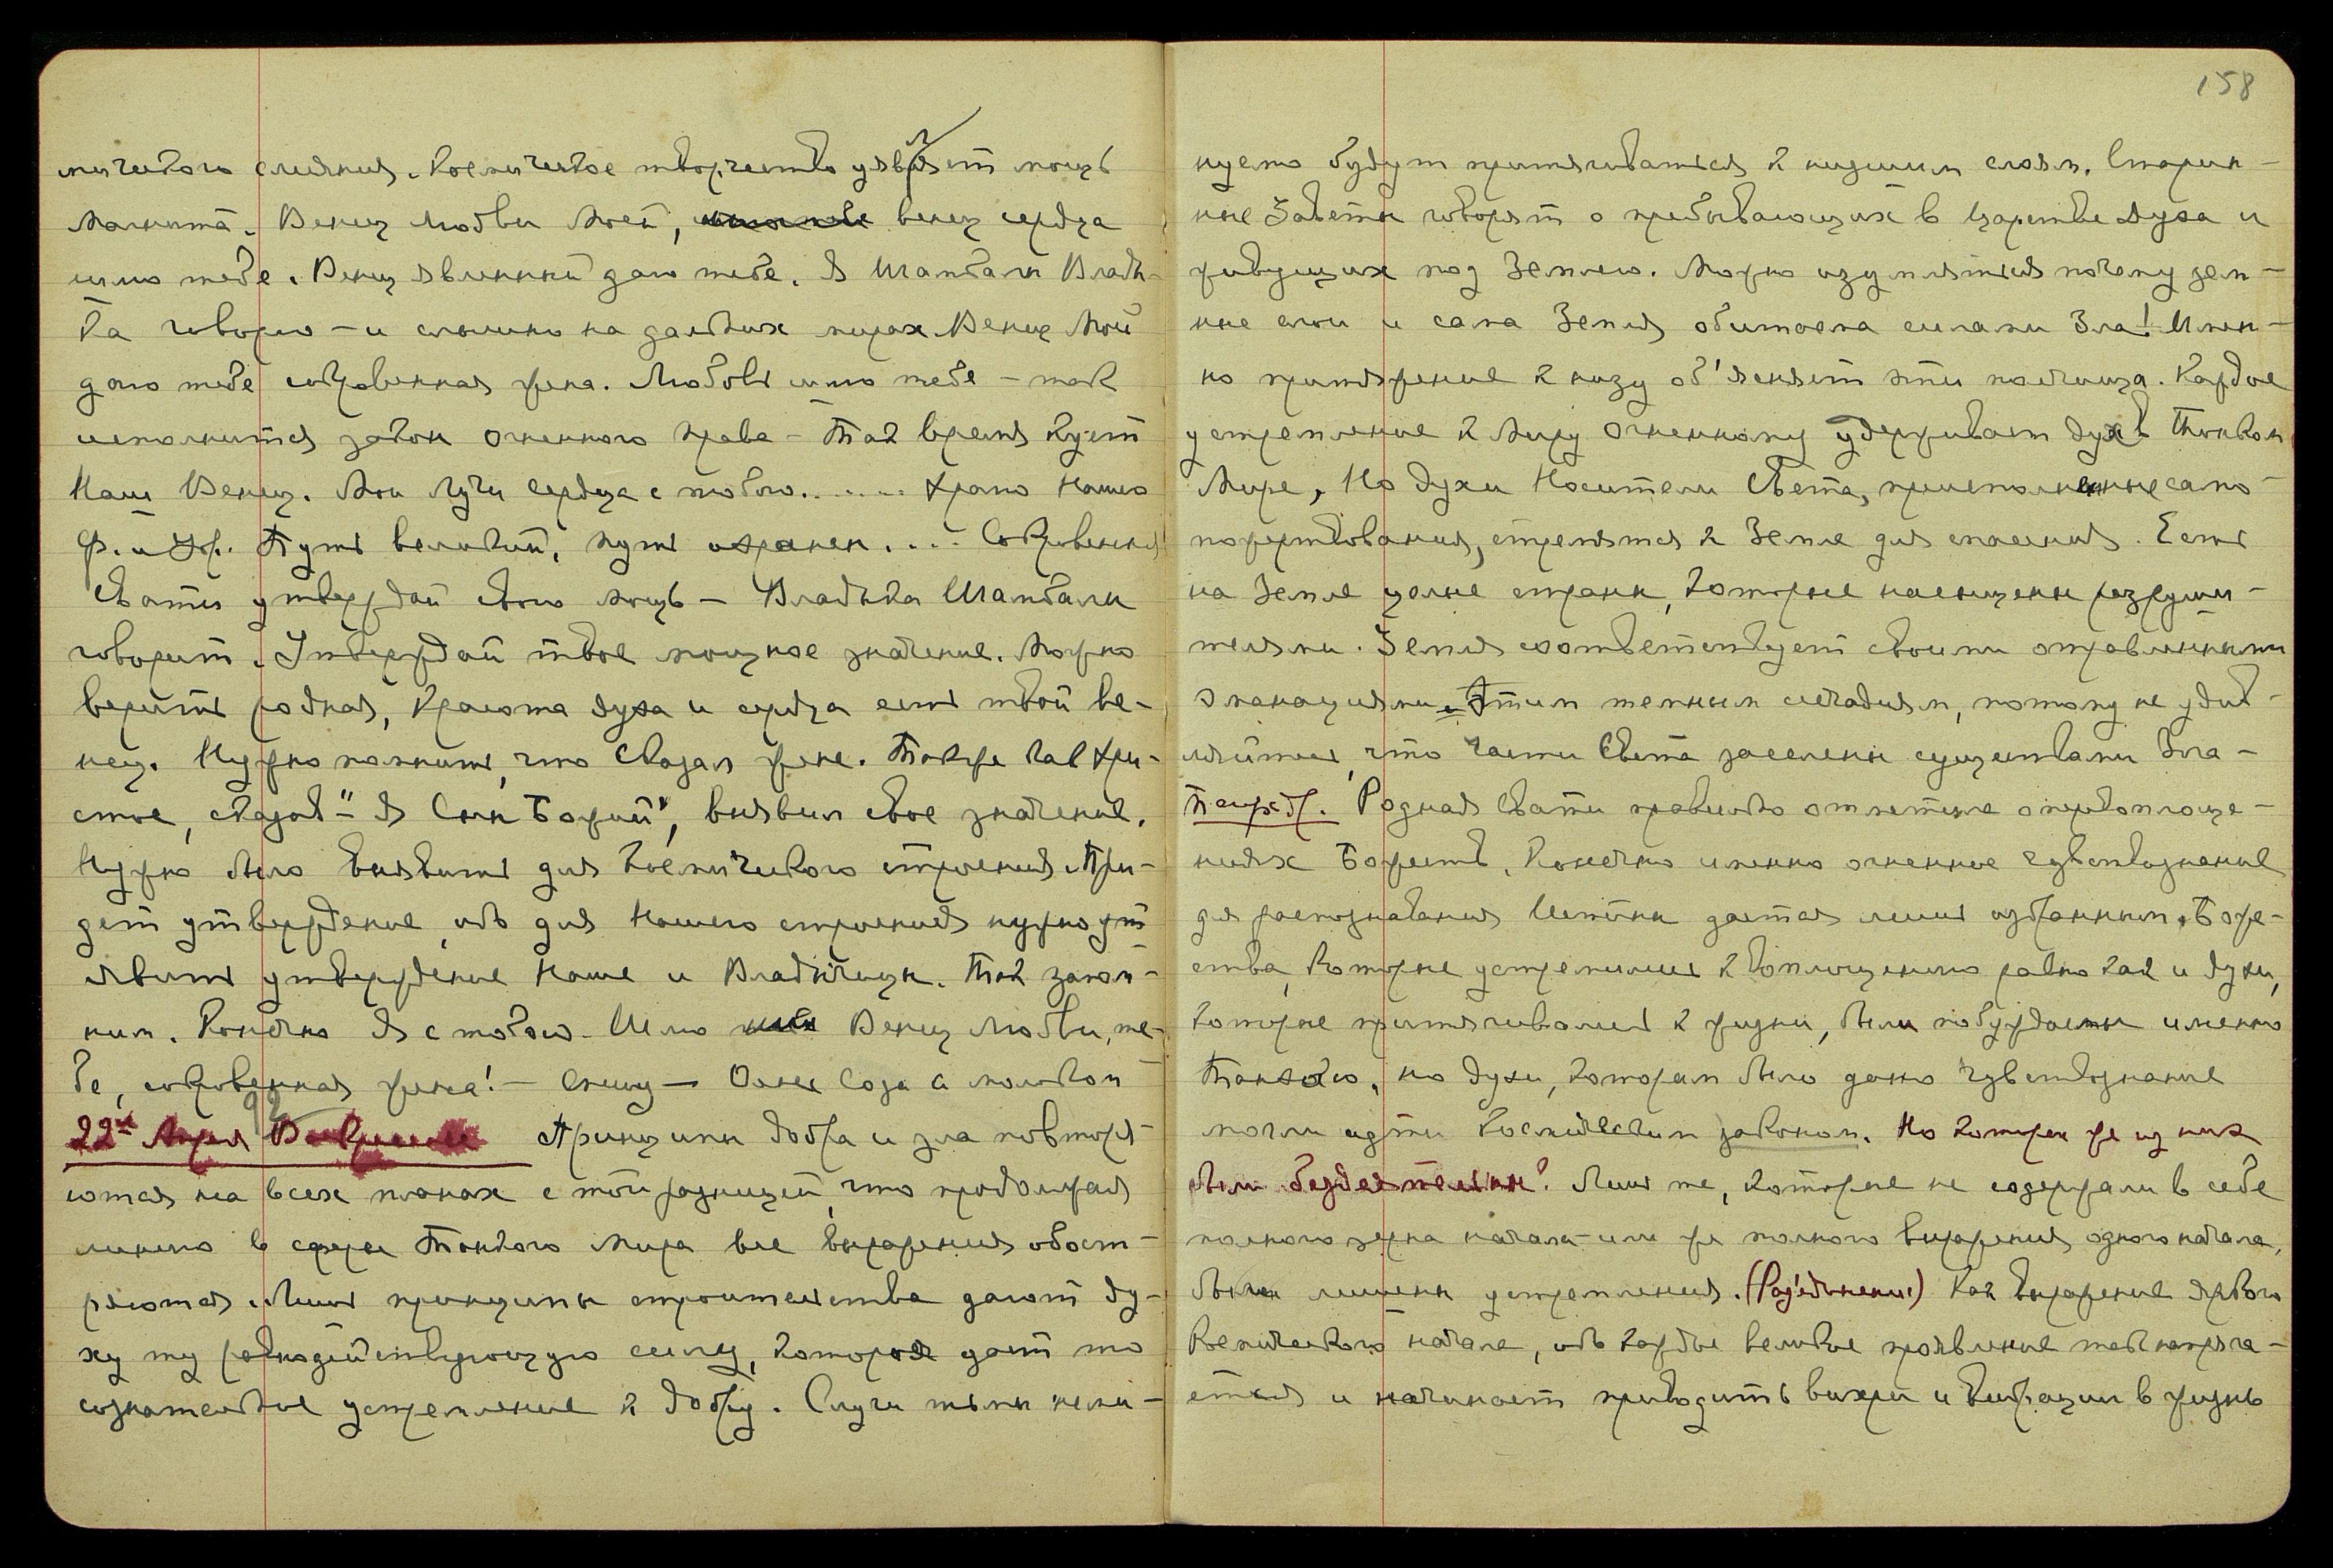 158
мического слияния. Космическое творчество уявляет мощь
магнита. Венец Любви Моей, венец сердца
шлю тебе. Венец явленный даю тебе. Я Шамбалы Влады-
ка говорю – и слышно на дальних мирах. Венец Мой
даю тебе сокровенная жена. Любовь шлю тебе – так
исполнится закон огненного права – Так время кует
Наш Венец. Мои Лучи Сердца с тобою....... Храм Нашего
Ф. и Ур. Путь великий, путь охранен.... Сокровенная
Свати утверждай свою мощь – Владыка Шамбалы
говорит. Утверждай твое мощное значение. Можно
верить родная, красота духа и сердца есть твой ве-
нец. Нужно помнить, что сказал жене. Также как Хри-
стос, сказав – "Я Сын Божий", выявил свое значение.
Нужно было выявить для космического строения. При-
дет утверждение, ибо для Нашего строения нужно
явить утверждение Наше и Владычицы. Так запом-
ним. Конечно Я с тобою. Шлю Венец Любви, те-
бе, сокровенная жена! – Спешу –
22ое Апреля Принципы добра и зла повторя-
ются на всех планах с той разницей, что продолжая
линию в сферы Тонкого Мира все выражения обост-
ряются. Лишь принципы строительства дают ду-
ху ту равнодействующую силу, которая дает то
сознательное устремление к добру. Слуги тьмы неми-
нуемо будут притягиваться к низшим слоям. Старин-
ные Заветы говорят о пребывающих в царстве Духа и
живущих под Землею. Можно изумляться почему зем-
ные слои и сама Земля обитаема силами Зла! Имен-
но притяжение к низу об'ясняет эти полчища. Каждое
устремление к Миру Огненному удерживает дух в Тонком
Мире, Но духи Носители Света, преисполненные само-
пожертвования, стремятся к Земле для спасения. Есть
на Земле целые страны, которые насыщены разруши-
телями. Земля соответствует своими отравленными
эманациями этим темным исчадиям, потому не удив-
ляйтесь, что части Света заселены существами Зла –
Родная Свати правильно отметила о перевоплоще-
ниях Божеств. Конечно именно огненное чувствознание
для распознавания Истины дается лишь избранным. Боже-
ства, которые устремились к воплощению равно как и духи,
которые притягивались к жизни, были побуждаемы именно
Тонкостью, но духи, которым было дано чувствознание
могли идти космическим законом. Но которые же из них
были бездеятельны? Лишь те, которые не содержали в себе
полного зерна начала или же полного выражения одного начала,
были лишены устремления. (Раз'единены!) Как выражение яркого
космического начала, ибо каждое великое проявление так напряга-
ется и начинает приводить вихри и вибрации в жизнь